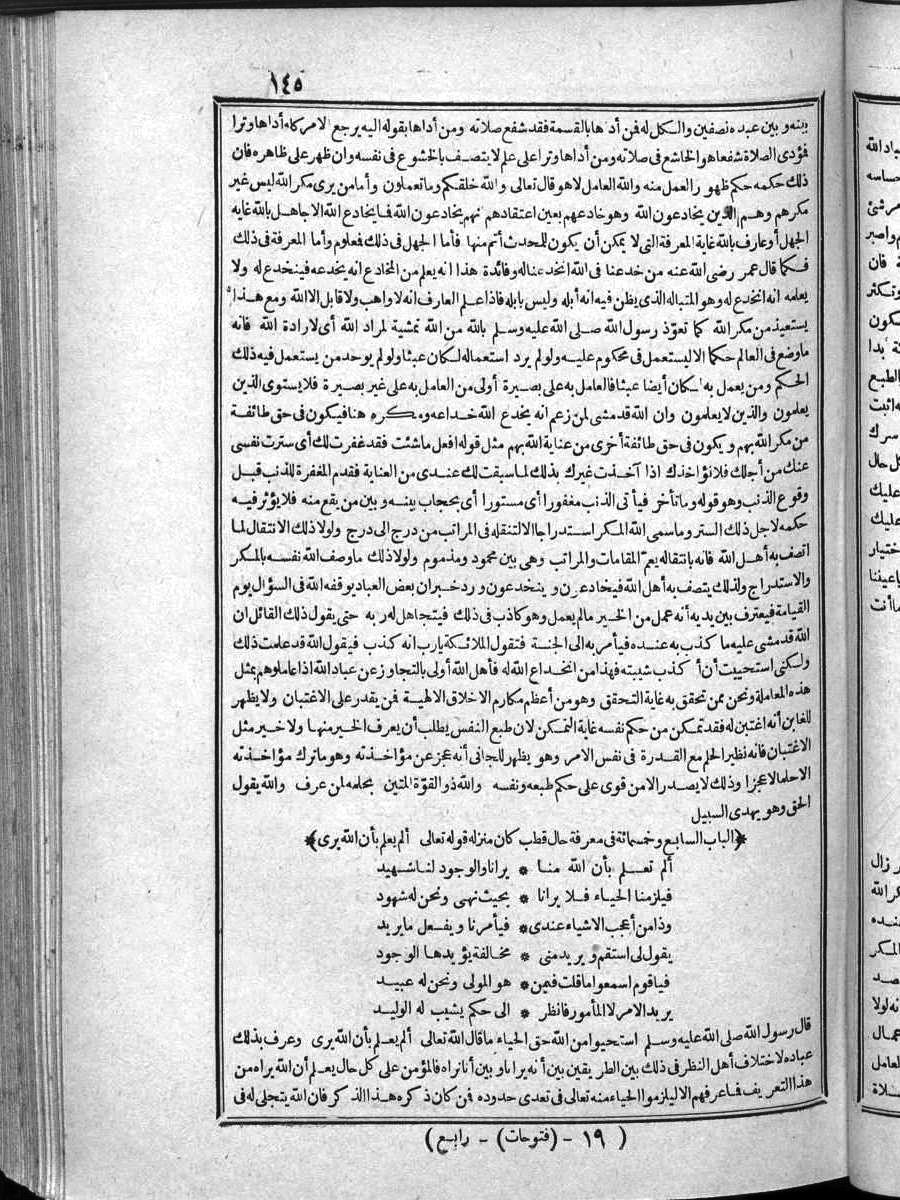 ١٤٥
بينه وبين عبده نصفين والكل له فمن أداها بالقسمة فقد شفع صلاته ومن أداها بقوله اليه يرجع الامر كله أداها وترا
فمؤدى الصلاة شفعا هو الخاشع فى صلاته ومن أداها وترا على علم لا يتصف بالخشوع فى نفسه وان ظهر على ظاهره فان
ذلك حكمه حكم ظهور العمل منه والله العامل لا هو قال تعالى والله خلقكم وما تعملون وأما من يرى مكر الله ليس غير
مكرهم وهم الذين يخادعون الله وهو خادعهم بعين اعتقادهم انهم يخادعون الله فما يخادع الله الا جاهل بالله غاية
الجهل أو عارف بالله غاية المعرفة التى لا يمكن أن يكون للمحدث أتم منها فأما الجهل فى ذلك فمعلوم وأما المعرفة فى ذلك
فكما قال عمر رضى الله عنه من خدعنا فى الله انخدعنا له وفائدة هذا انه يعلم من المخادع انه يخدعه فينخدع له ولا
يعلمه انه انخدع له وهو المتباله الذى يظن فيه انه أبله وليس بابله فاذا علم العارف انه لا واهب ولا قابل الا الله ومع هذا
يستعيذ من مكر الله كما تعوّذ رسول الله صلى الله عليه وسلم بالله من الله تمشية لمراد الله أى لارادة الله فانه
ما وضع فى العالم حكما الا ليستعمل فى محكوم عليه ولو لم يرد استعماله لكان عبثا ولو لم يوجد من يستعمل فيه ذلك
الحكم ومن يعمل به لكان أيضا عبثا فالعامل به على بصيرة أولى من العامل به على غير بصيرة فلا يستوى الذين
يعلمون والذين لا يعلمون وان الله قد مشى لمن زعم انه يخدع الله خداعه ومكره هنا فيكون فى حق طائفة
من مكر الله بهم ويكون فى حق طائفة أخرى من عناية الله بهم مثل قوله افعل ما شئت فقد غفرت لك أى سترت نفسى
عنك من أجلك فلا نؤاخذك اذا آخذت غيرك بذلك لما سبقت لك عندى من العناية فقدم المغفرة للذنب قبل
وقوع الذنب وهو قوله وما تأخر فيأتى الذنب مغفورا أى مستورا أى بحجاب بينه وبين من يقع منه فلا يؤثر فيه
حكمه لاجل ذلك الستر وما سمى الله المكر استدراجا الا لتنقله فى المراتب من درج الى درج ولولا ذلك الانتقال لما
اتصف به أهل الله فانه بانتقاله يعم المقامات والمراتب وهى بين محمود ومذموم ولولا ذلك ما وصف الله نفسه بالمكر
والاستدراج ولذلك يتصف به أهل الله فيخادعون وينخدعون ورد خبر ان بعض العباد يوقفه الله فى السؤال يوم
القيامة فيعترف بين يديه أنه عمل من الخير ما لم يعمل وهو كاذب فى ذلك فيتجاهل له ربه حتى يقول ذلك القائل ان
الله قد مشى عليه ما كذب به عنده فيأمر به الى الجنة فتقول الملائكة يا رب انه كذب فيقول الله قد علمت ذلك
ولكنى استحييت أن أكذب شيبته فهذا من انخداع الله له فأهل الله أولى بالتجاوز عن عباد الله اذا عاملوهم بمثل
هذه المعاملة ونحن ممن تحقق به غاية التحقق وهو من أعظم مكارم الاخلاق الالهية فمن يقدر على الاغتبان ولا يظهر
للغابن أنه اغتبن له فقد تمكن من حكم نفسه غاية التمكن لان طبع النفس يطلب أن يعرف الخير منها ولا خير مثل
الاغتبان فانه نظير الحلم مع القدرة فى نفس الامر وهو يظهر للجانى أنه عجز عن مؤاخذته وهو ما ترك مؤاخذته
الا حلما لا عجزا وذلك لا يصدر الا من قوى على حكم طبعه ونفسه والله ذو القوّة المتين بحلمه لمن عرف والله يقول
الحق وهو يهدى السبيل
﴿الباب السابع وخمسمائة فى معرفة حال قطب كان منزله قوله تعالى ألم يعلم بأن الله يرى﴾
ألم تعلم بأن الله منا * يرانا والوجود لنا شهيد
فيلزمنا الحياء فلا يرانا * بحيث نهى ونحن له شهود
وذا من أعجب الاشياء عندى * فيأمرنا ويفعل ما يريد
يقول لى استقم ويريد منى * مخالفة يؤيدها الوجود
فيا قوم اسمعوا ما قلت فيمن * هو المولى ونحن له عبيد
يريد الامر لا المأمور فانظر * الى حكم يشيب له الوليد
قال رسول الله صلى الله عليه وسلم استحيوا من الله حق الحياء ما قال الله تعالى ألم يعلم بأن الله يرى وعرف بذلك
عباده لاختلاف أهل النظر فى ذلك بين الطريقين بين أنه يرانا وبين أنا نراه فالمؤمن على كل حال يعلم ان الله يراه من
هذا التعريف فما عرفهم الا ليلزموا الحياء منه تعالى فى تعدى حدوده فمن كان ذكره هذا الذكر فان الله يتجلى له فى
( ١٩ - (فتوحات) - رابع )